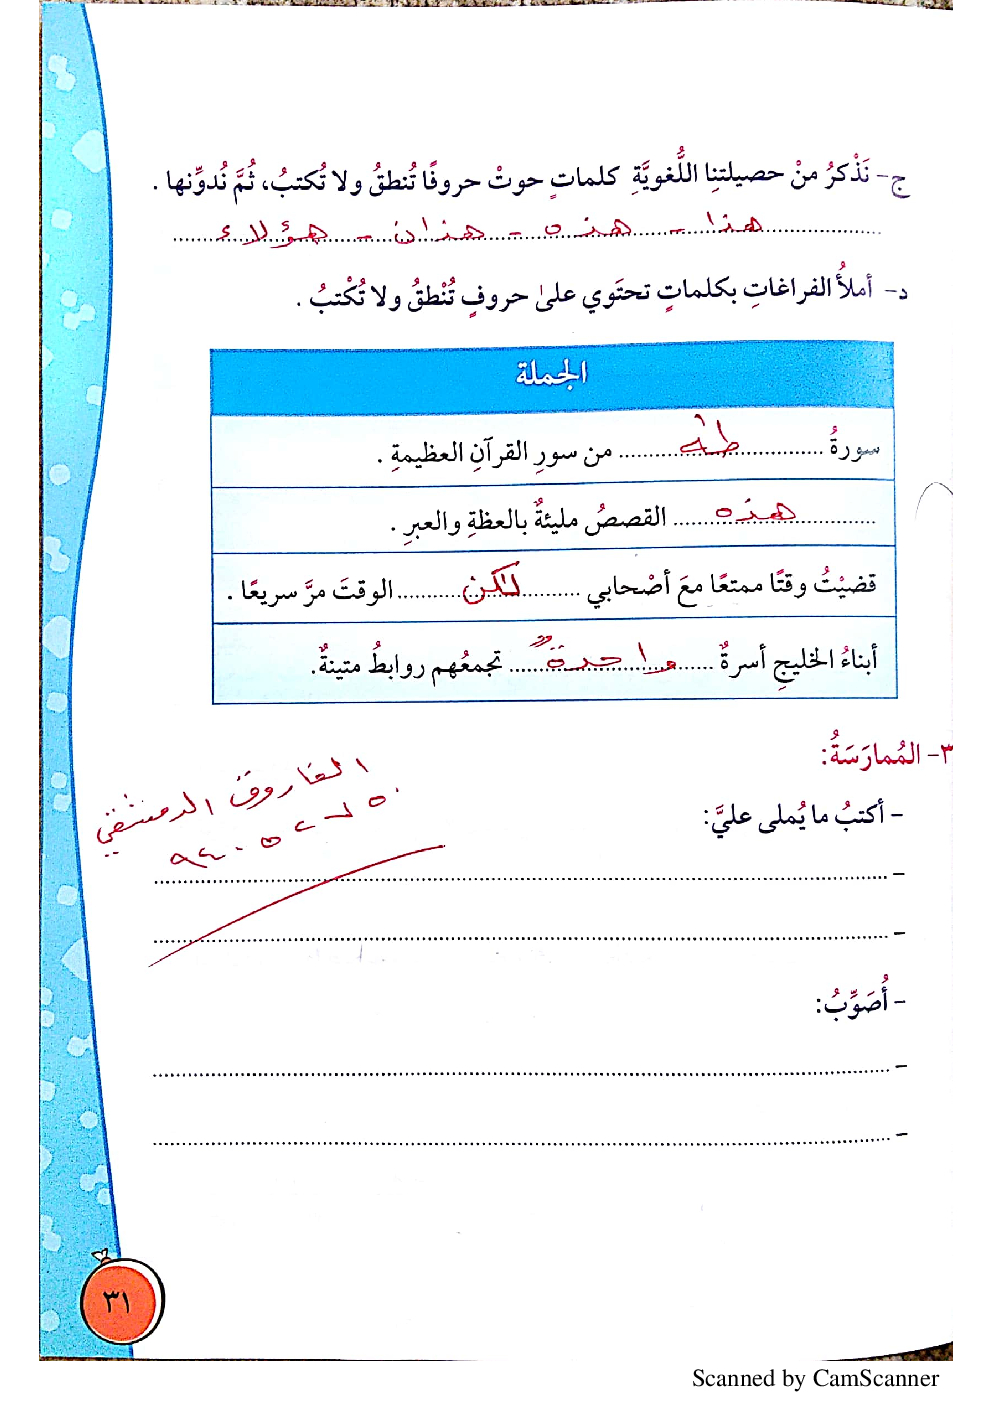 ج- نَذْكرُ منْ حصيلتنِا اللُّغويَّةِ كلماتٍ حوتْ حروفًا تُنطقُ ولا تُكتبُ، ثُمَّ نُدوِّنها .
هذا - هذه - هذان - هؤلاء
د- أملأُ الفراغاتِ بكلماتٍ تحتَوي علىٰ حروفٍ تُنْطقُ ولا تُكْتبُ .
الجملة
سورةُ ........ طٰه ........ من سورِ القرآنِ العظيمةِ .
........ هذه ........ القصصُ مليئةٌ بالعظةِ والعبرِ .
قضيْتُ وقتًا ممتعًا معَ أصْحابي ........ لكن ........ الوقتَ مرَّ سريعًا .
أبناءُ الخليجِ أسرةٌ ........ واحدةٌ ........ تجمعُهم روابطُ متينةٌ.
٣- المُمارَسَةُ:
الفاروق الدمشقي
- أكتبُ ما يُملى عليَّ:
-
-
- أُصَوِّبُ:
-
-
٣١
Scanned by CamScanner